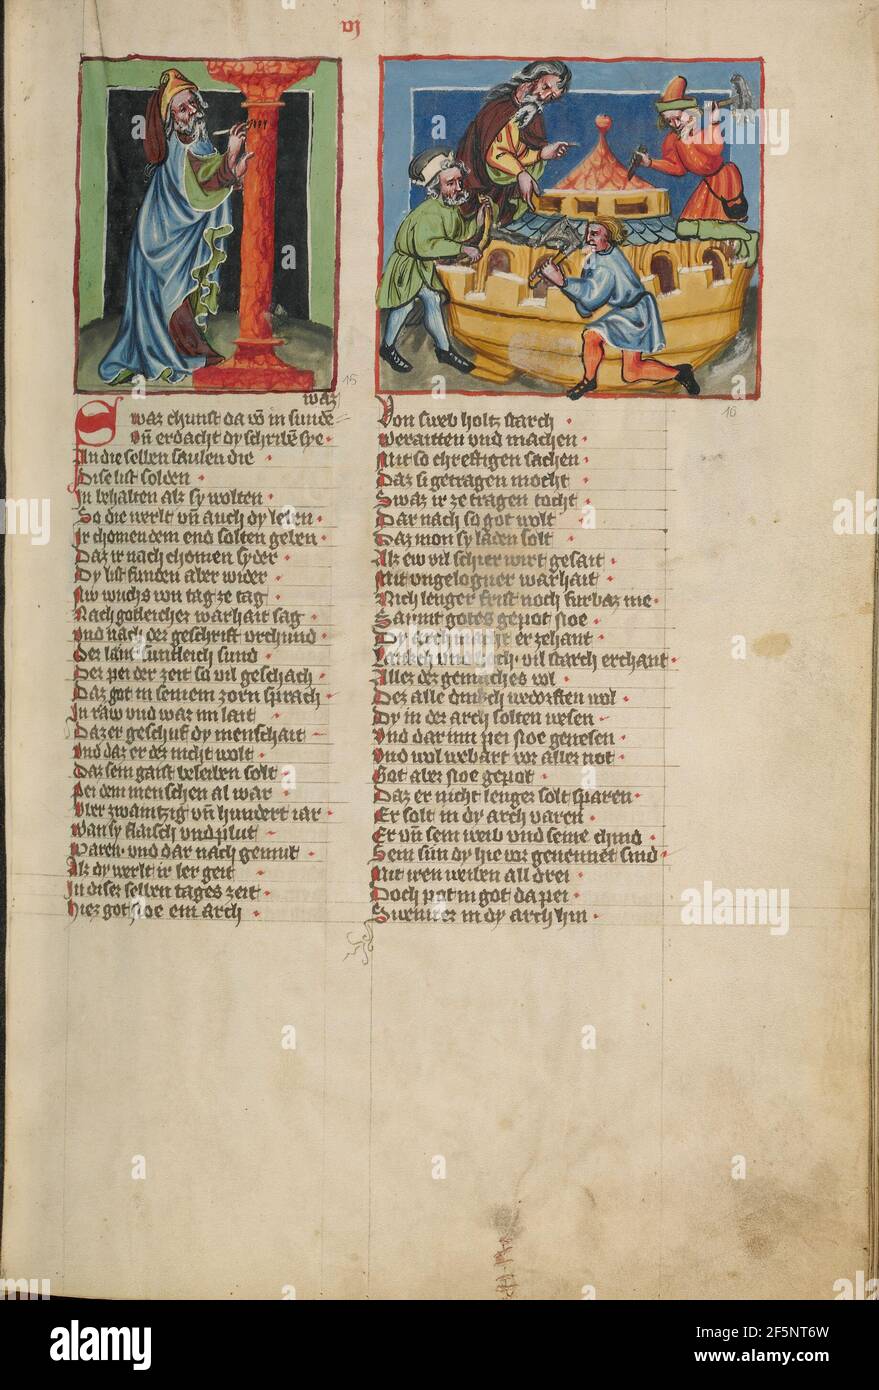 vj
15
waz
Swaz chunst da vō in fundē
Vn̄ erdacht dy schribē sye
An die selben saulen die
Dise list solden
In behalten alz sy wolten
So die werlt vn̄ auch dy leben
Ir chomen dem end solten geben
Daz ir nach chomen syder
Dy list funden aber wider
Nv wuchs von tag ze tag
Nach gotleicher warhait sag
Vnd nach der geschrift vrchund
Der lawt suntleich sund
Der pei der zeit so vil geschach
Daz got in seinem zorn sprach
In raw vnd waz im lait
Daz er geschuf dy menschait
Vnd daz er des nicht wolt
Daz sein gaist beleiben solt
Pei dem menschen al war
Vber zwaintzig vn̄ hundert iar
Wan sy flaisch vnd plut
Waren vnd dar nach gemut
Alz dy werlt ir ler geit
In diser selben tages zeit
Hiez got noe ein arch
16
Von sweb holtz starch
Weraitten vnd machen
Mit so chreftigen sachen
Daz si getragen mocht
Swaz ir ze tragen tocht
Dar nach so got wolt
Daz mon sy laden solt
Alz ew vil schier wirt gesait
Mit vngelogner warhait
Nich lenger frist noch furbaz me
Sawmt gotes gepot noe
Dy arch macht er zehant
vnd hoch vil starch erchant
Aller der gemaches vol
Des alle dinch wedorften wol
Dy in der arch solten wesen
Vnd dar inn pei noe genesen
Vnd wol webart vor aller not
Got aber noe gepot
Daz er nicht lenger solt sparen
Er solt in dy arch varen
Er vn̄ sein weib vnd seine chind
Sem sun dy hie vor genennet sind
Mit iren weiben all drei
Doch pat in got da pei
Swenn er in dy arch hin
alamy
Image ID: 2F5NT6W
www.alamy.com